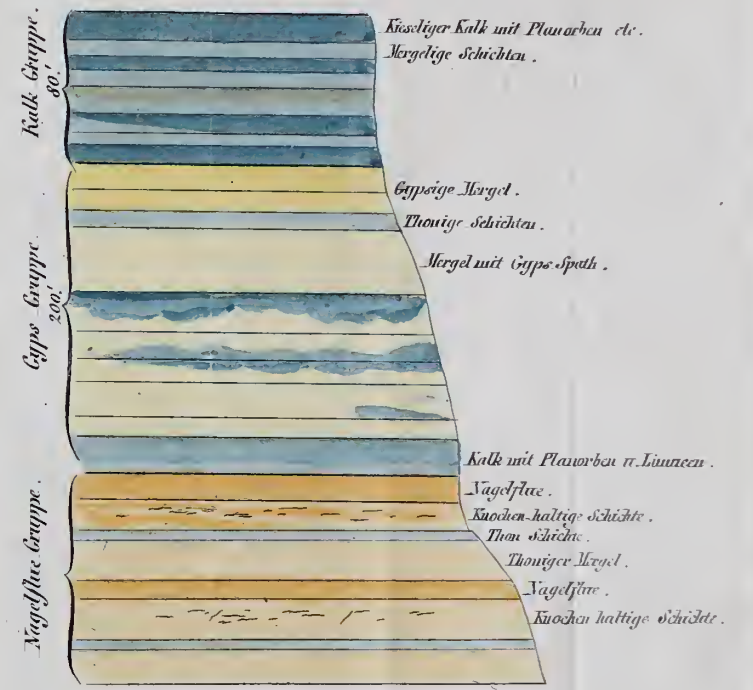 Kalk Gruppe.
80.'
Kieseliger Kalk mit Planorben etc.
Mergelige Schichten.
Gyps Gruppe.
200.'
Gypsige Mergel.
Thonige Schichten.
Mergel mit Gyps Spath.
Kalk mit Planorben u. Limneen.
Nagelflue Gruppe.
Nagelflue.
Knochen-haltige Schichte.
Thon Schichte.
Thoniger Mergel.
Nagelflue.
Knochen haltige Schichte.